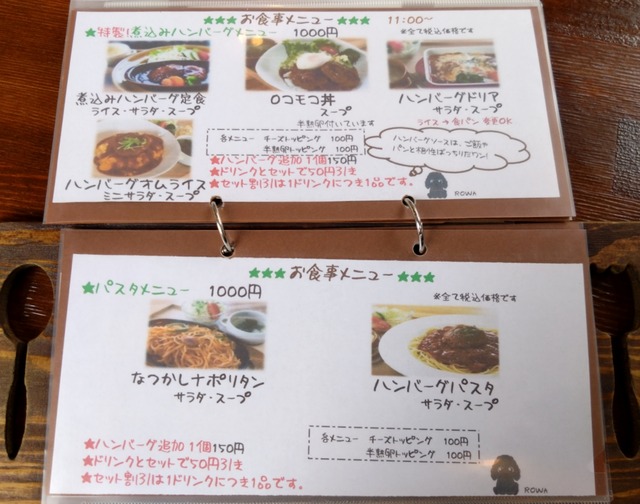 ★★★お食事メニュー★★★ 11:00～
★特製!煮込みハンバーグメニュー 1000円 ※全て税込価格です
煮込みハンバーグ定食
ライス・サラダ・スープ
ロコモコ丼
スープ
半熟卵付いています
ハンバーグドリア
サラダ・スープ
ライス→食パン 変更OK
各メニュー チーズトッピング 100円
半熟卵トッピング 100円
ハンバーグソースは、ご飯や
パンと相性ばっちりだワン!
ハンバーグオムライス
ミニサラダ・スープ
★ハンバーグ追加1個150円
★ドリンクとセットで50円引き
★セット割引は1ドリンクにつき1品です。
ROWA
★★★お食事メニュー★★★
★パスタメニュー 1000円 ※全て税込価格です
なつかしナポリタン
サラダ・スープ
ハンバーグパスタ
サラダ・スープ
★ハンバーグ追加1個150円
★ドリンクとセットで50円引き
★セット割引は1ドリンクにつき1品です。
各メニュー チーズトッピング 100円
半熟卵トッピング 100円
ROWA